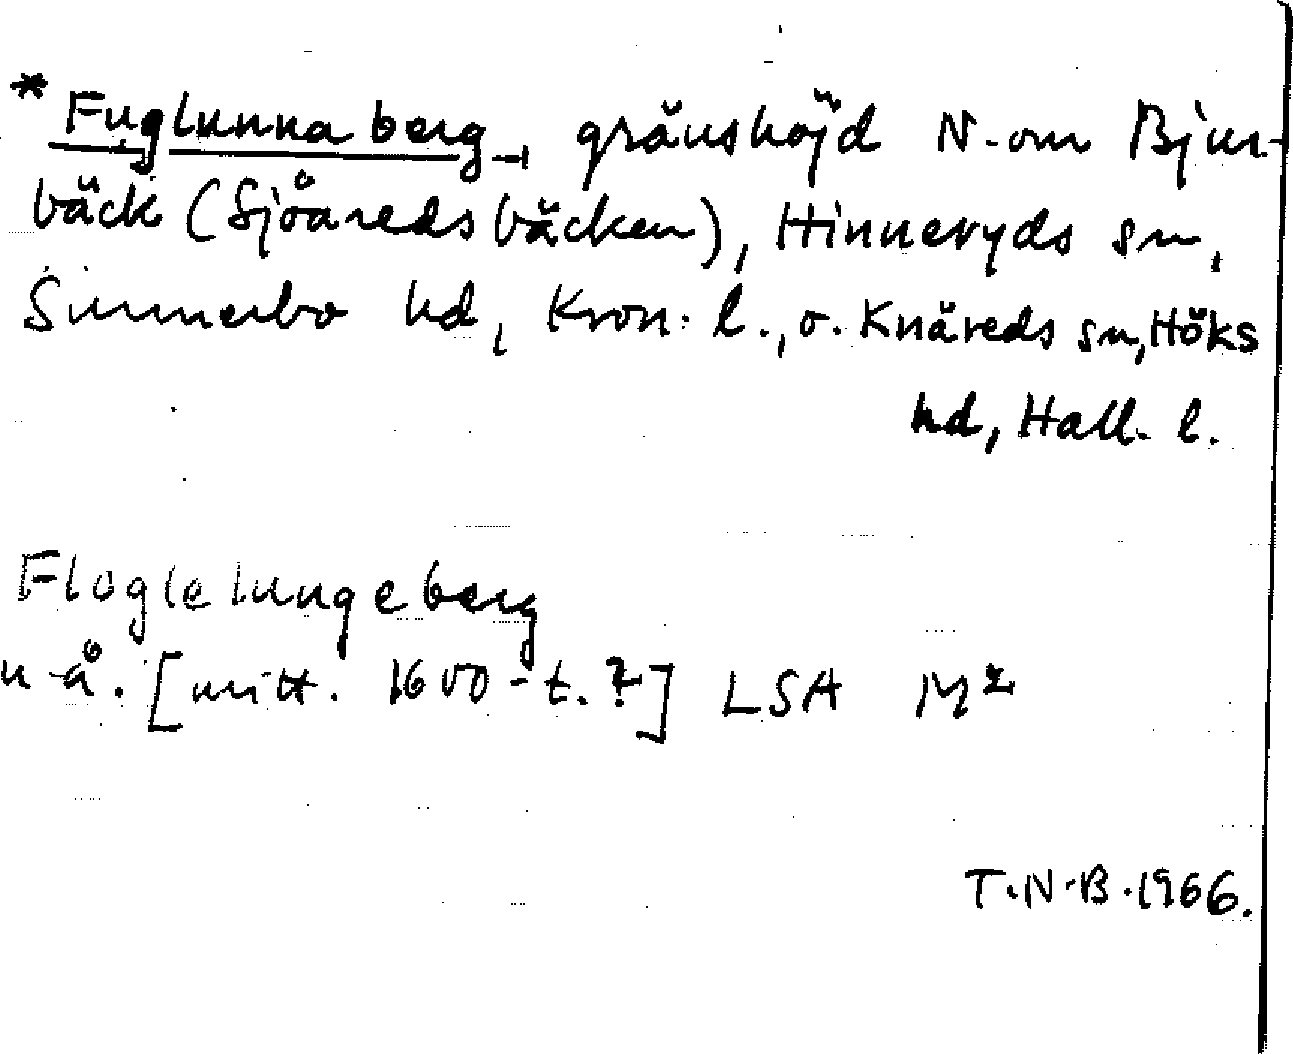 *Fuglunnaberg, gränshöjd N. om Bjur-
bäck (Sjöaredsbäcken), Hinneryds sn,
Sunnerbo hd, Kron. l., o. Knäreds sn, Höks
hd, Hall. l.
Floglelungeberg
u. å. [mitt. 1600-t.?] LSA M²
T.N.B. 1966.